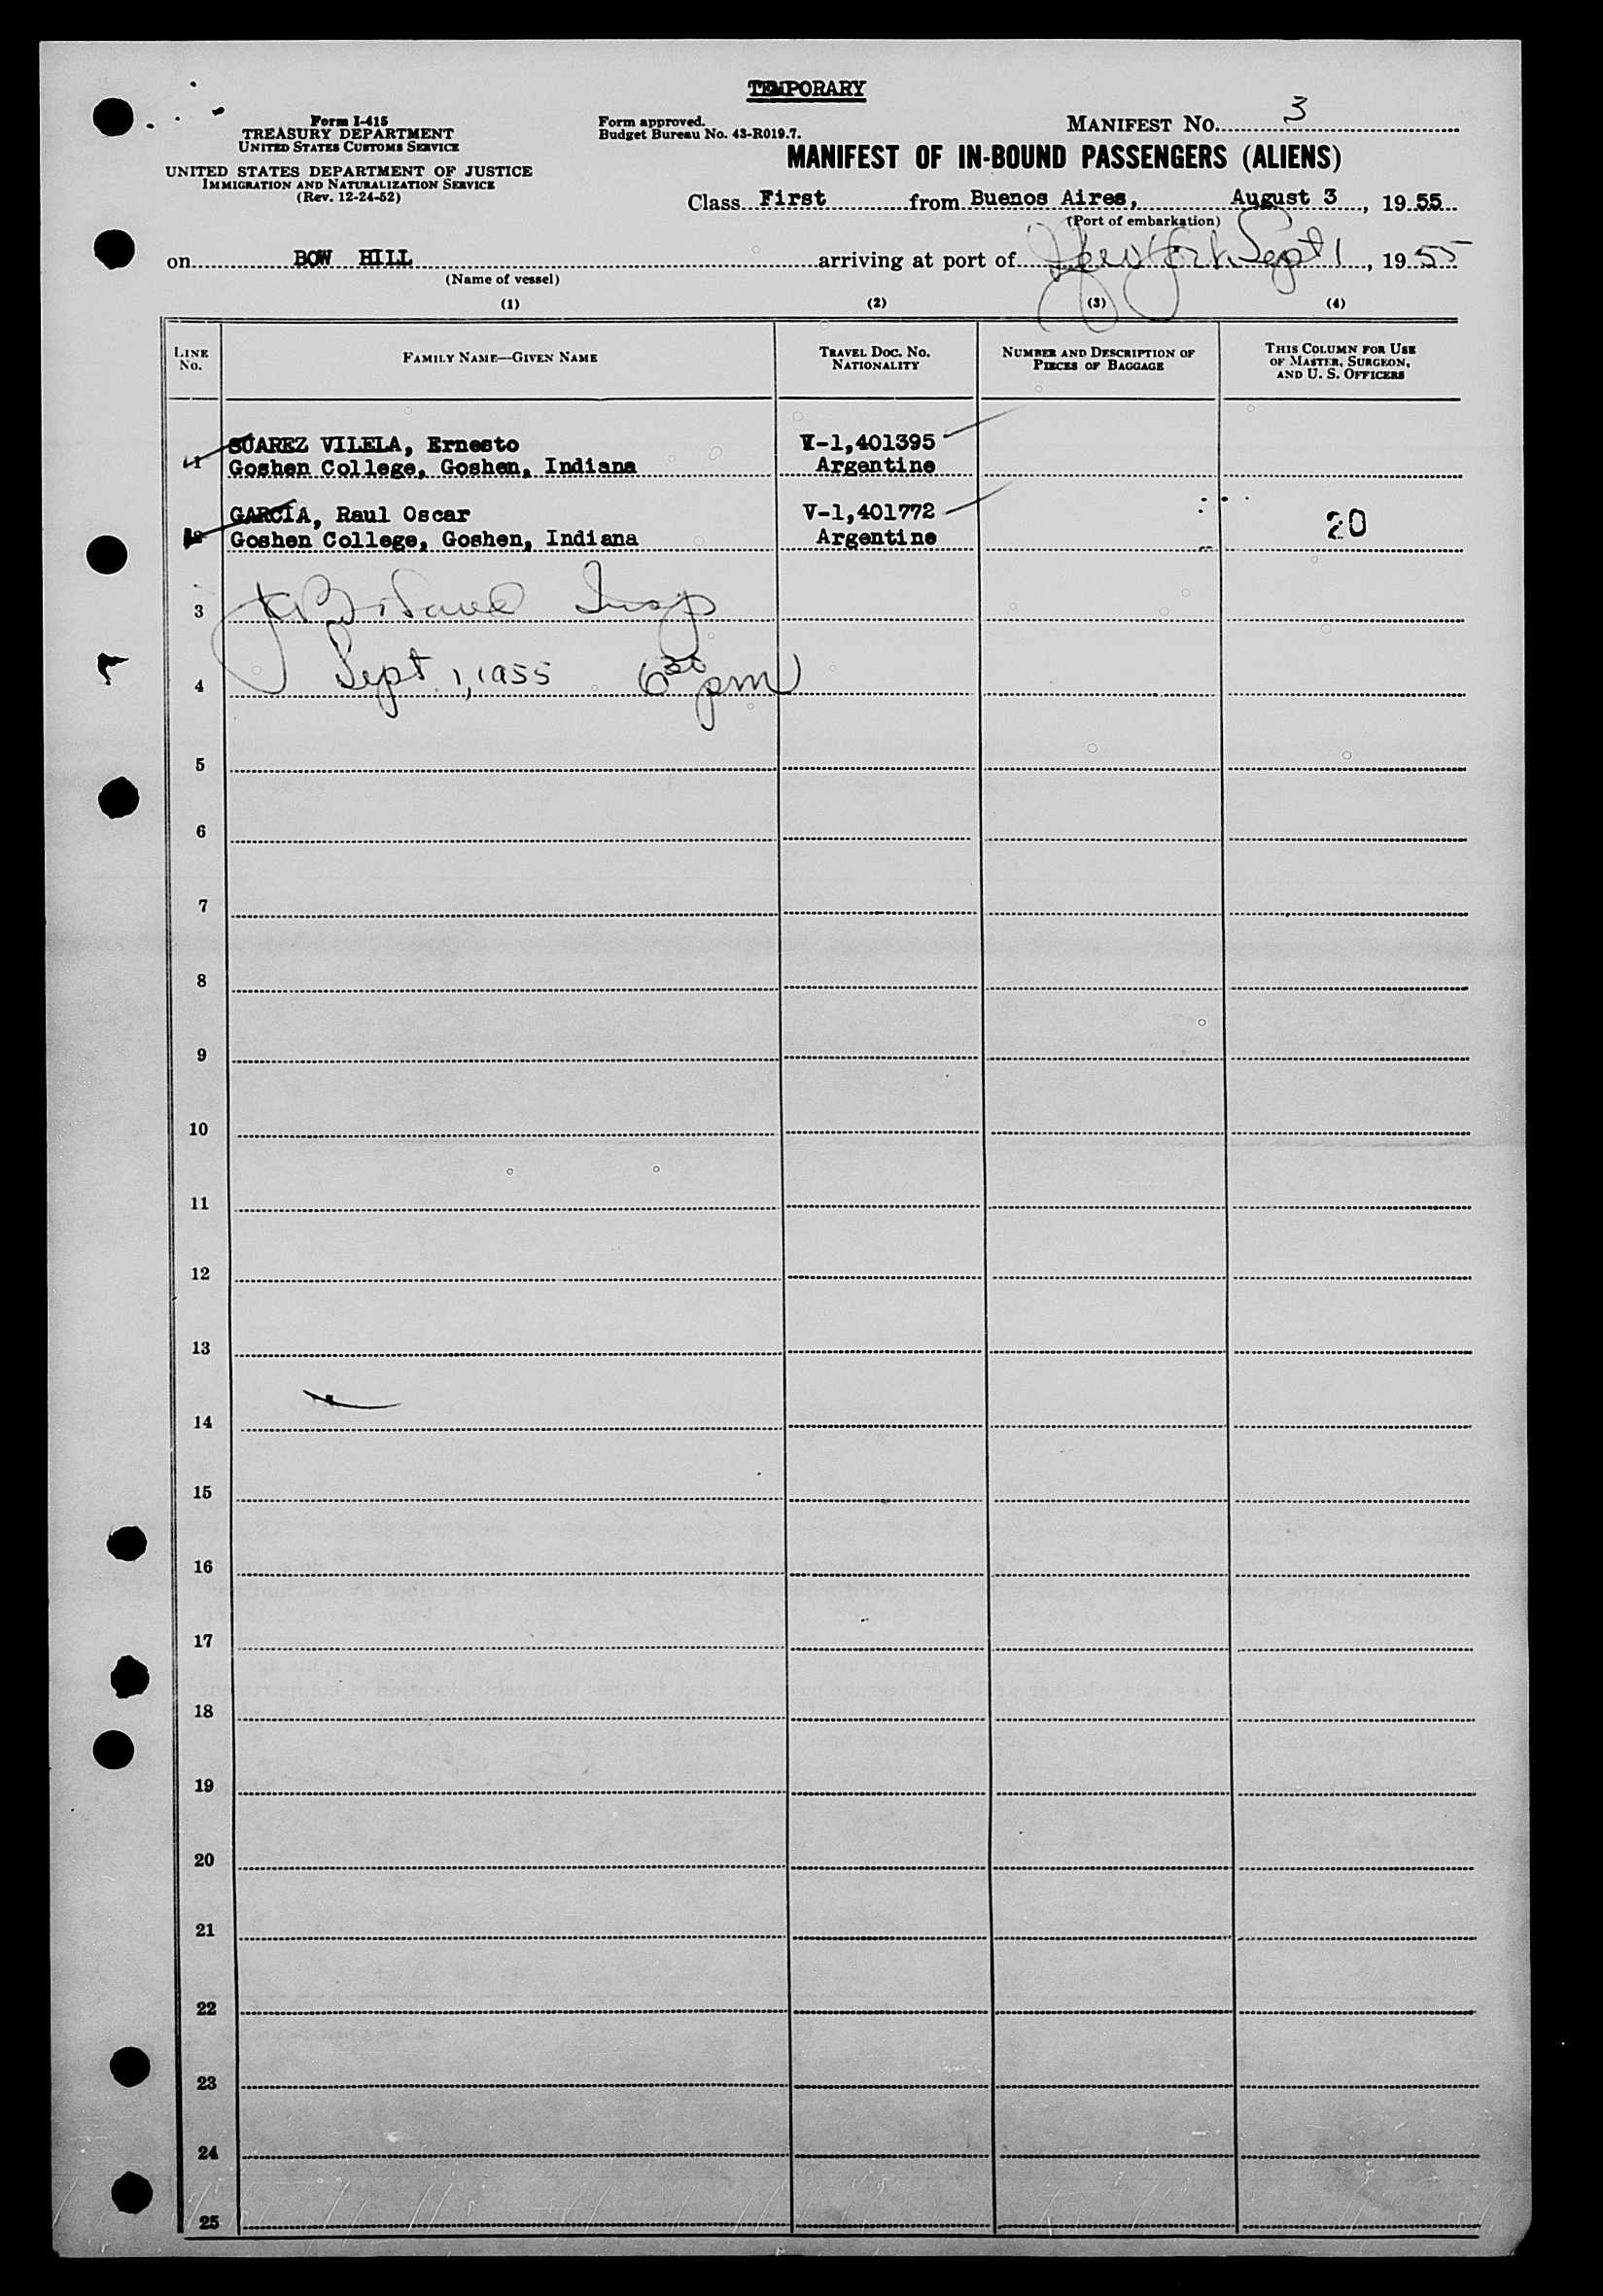 TEMPORARY
Form I-415
TREASURY DEPARTMENT
UNITED STATES CUSTOMS SERVICE
UNITED STATES DEPARTMENT OF JUSTICE
IMMIGRATION AND NATURALIZATION SERVICE
(Rev. 12-24-52)
Form approved.
Budget Bureau No. 43-R019.7.
MANIFEST NO. 3
MANIFEST OF IN-BOUND PASSENGERS (ALIENS)
Class First from Buenos Aires, August 3, 1955
(Port of embarkation)
on BOW HILL arriving at port of New York Sept 1, 1955
(Name of vessel)
(1) (2) (3) (4)
LINE NO. FAMILY NAME—GIVEN NAME TRAVEL DOC. NO. NATIONALITY NUMBER AND DESCRIPTION OF PIECES OF BAGGAGE THIS COLUMN FOR USE OF MASTER, SURGEON, AND U. S. OFFICERS
1 SUAREZ VILELA, Ernesto V-1,401395
Goshen College, Goshen, Indiana Argentine
2 GARCIA, Raul Oscar V-1,401772 20
Goshen College, Goshen, Indiana Argentine
3 Insp
4 Sept 1, 1955 6 30 pm
5
6
7
8
9
10
11
12
13
14
15
16
17
18
19
20
21
22
23
24
25